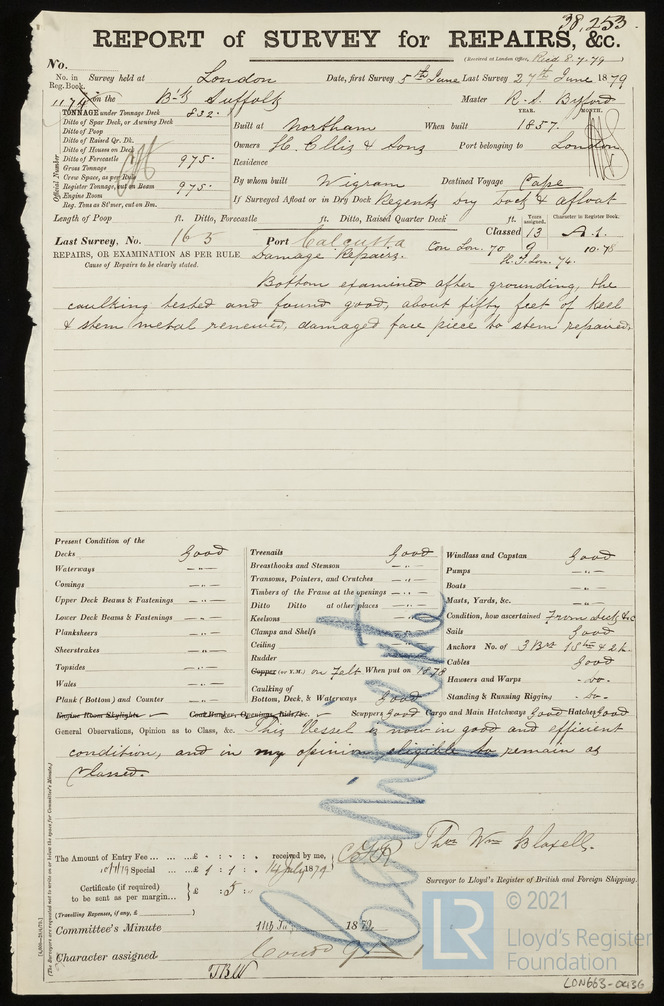 38,253
REPORT of SURVEY for REPAIRS, &c.
(Received at London Office, Recd 8.7.79)
No.
No. in Reg. Book. Survey held at London Date, first Survey 5th June Last Survey 27th June 1879
1174 on the Bk Suffolk Master R. S. Byford
TONNAGE under Tonnage Deck 832.
Ditto of Spar Deck, or Awning Deck
Ditto of Poop
Ditto of Raised Qr. Dk.
Ditto of Houses on Deck
Ditto of Forecastle
Gross Tonnage 975.
Crew Space, as per Rule
Register Tonnage, cut on Beam 975.
Engine Room
Reg. Tons as St'mer, cut on Bm.
Official Number
Built at Northam When built YEAR. 1857. MONTH.
Owners H. Ellis & Sons Port belonging to London
Residence
By whom built Wigram Destined Voyage Cape
If Surveyed Afloat or in Dry Dock Regents dry dock & afloat
Length of Poop ft. Ditto, Forecastle ft. Ditto, Raised Quarter Deck ft. Years assigned. Character in Register Book.
Classed 13 A.1.
Last Survey, No. 163 Port Calcutta Con. Lon. 70 9 10.78
R.S. Lon. 74.
REPAIRS, OR EXAMINATION AS PER RULE Damage Repairs.
Cause of Repairs to be clearly stated.
Bottom examined after grounding, the
caulking tested and found good, about fifty feet of keel
& stem metal renewed, damaged face piece to stem repaired.
Present Condition of the
Decks Good
Waterways — " —
Comings — " —
Upper Deck Beams & Fastenings — " —
Lower Deck Beams & Fastenings — " —
Planksheers — " —
Sheerstrakes — " —
Topsides — " —
Wales — " —
Plank (Bottom) and Counter — " —
Treenails Good
Breasthooks and Stemson — " —
Transoms, Pointers, and Crutches — " —
Timbers of the Frame at the openings — " —
Ditto Ditto at other places — " —
Keelsons — " —
Clamps and Shelfs
Ceiling
Rudder
Copper (or Y.M.) on Felt When put on 1878
Caulking of
Bottom, Deck, & Waterways Good
Windlass and Capstan Good
Pumps — " —
Boats — " —
Masts, Yards, &c. — " —
Condition, how ascertained From deck &c
Sails Good
Anchors No. of 3 Brs 1 Sth & 2 k.
Cables Good
Hawsers and Warps - do -
Standing & Running Rigging - do -
Engine Room Skylights Coal Bunker, Openings, Lids, &c. Scuppers Good Cargo and Main Hatchways Good Hatches Good
General Observations, Opinion as to Class, &c. This Vessel is now in good and efficient
condition, and in my opinion eligible to remain as
classed.
Continuate
The Amount of Entry Fee ... £ : : received by me,
Special ... £ 1 : 1 : 14 July 1879
Certificate (if required) to be sent as per margin... £ : 5 :
(Travelling Expenses, if any, £ )
Thos Wm Bloxell.
Surveyor to Lloyd's Register of British and Foreign Shipping.
Committee's Minute 11th July 1879
Character assigned
(The Surveyors are requested not to write on or below the space for Committee's Minute.)
© 2021
LR
Lloyd's Register
Foundation
LON663-0436